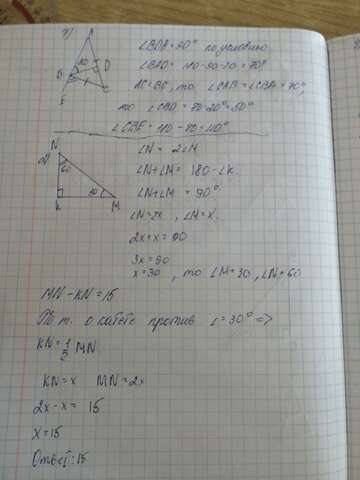 ∠BDA=90° по условию
∠BAD= 180-90-20=70°
AC=BC, то ∠CAB=∠CBA=70°,
то ∠CBD= 70-20=50°
∠CBE= 180-70=110°
2)
∠N= 2∠M
∠N+∠M= 180-∠K
∠N+∠M= 90°
∠N=2x, ∠M=x
2x+x=90
3x=90
x=30, то ∠M=30, ∠N=60
N
60
30
K
M
MN-KN=15
По т. о катете против ∠=30° =>
KN=1/2 MN
KN=x MN=2x
2x-x= 15
x=15
Ответ: 15